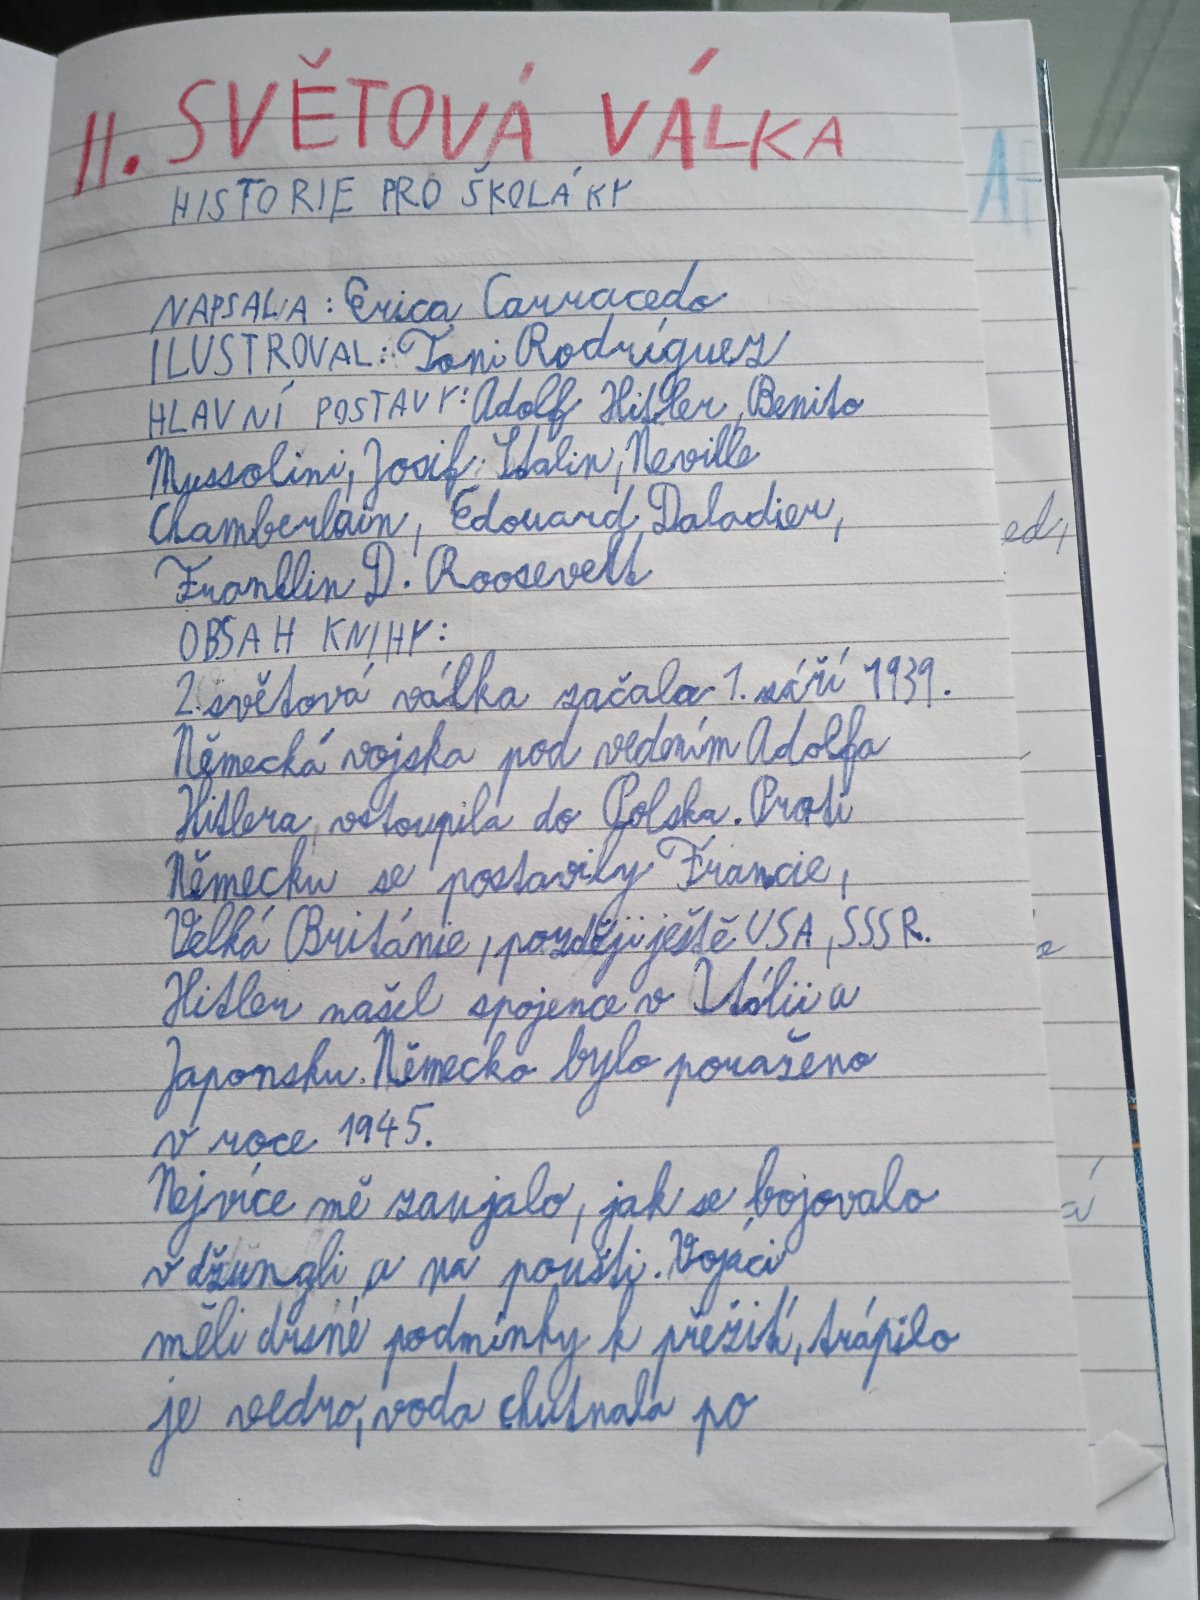 II. SVĚTOVÁ VÁLKA
HISTORIE PRO ŠKOLÁKY
NAPSALA: Erica Carracedo
ILUSTROVAL: Toni Rodríguez
HLAVNÍ POSTAVY: Adolf Hitler, Benito
Mussolini, Josif Stalin, Neville
Chamberlain, Edouard Daladier,
Franklin D. Roosevelt
OBSAH KNIHY:
2. světová válka začala 1. září 1939.
Německá vojska pod vedením Adolfa
Hitlera vstoupila do Polska. Proti
Německu se postavily Francie,
Velká Británie, později ještě USA, SSSR.
Hitler našel spojence v Itálii a
Japonsku. Německo bylo poraženo
v roce 1945.
Nejvíce mě zaujalo, jak se bojovalo
v džungli a na poušti. Vojáci
měli drsné podmínky k přežití, trápilo
je vedro, voda chutnala po